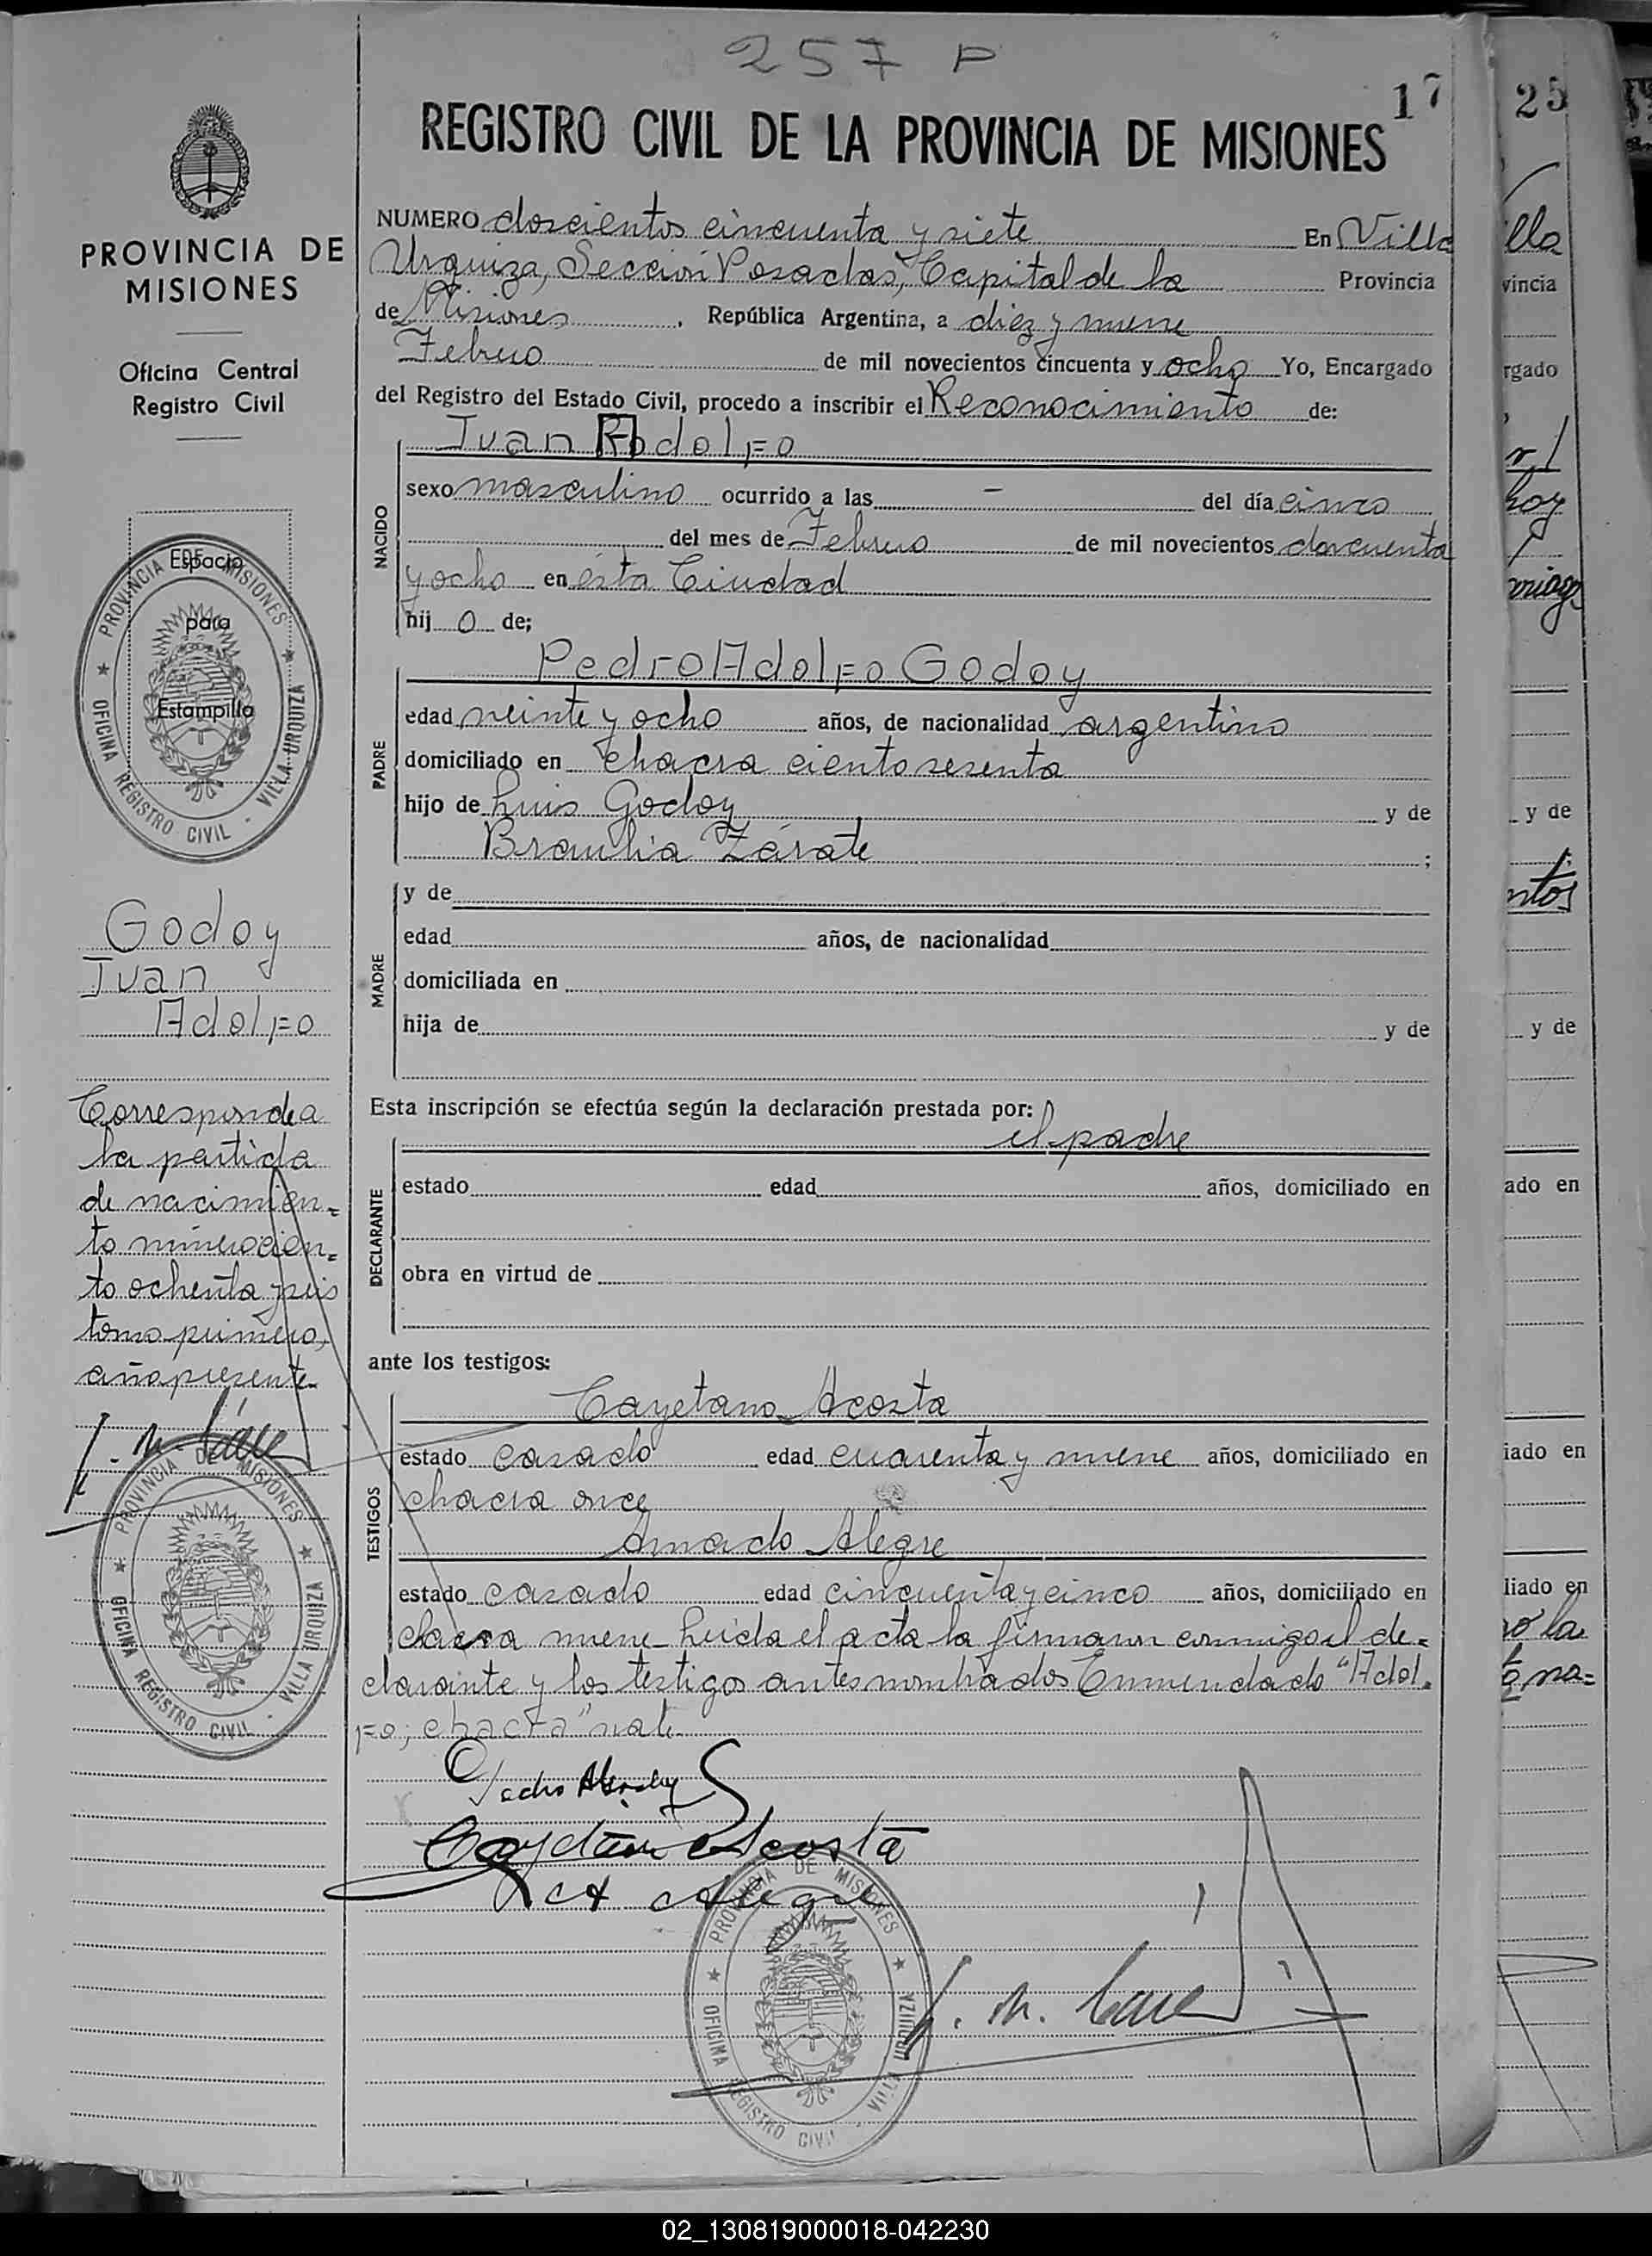 257 P
17
25
REGISTRO CIVIL DE LA PROVINCIA DE MISIONES
PROVINCIA DE
MISIONES
Oficina Central
Registro Civil
Espacio
para
Estampilla
PROVINCIA DE MISIONES
OFICINA REGISTRO CIVIL - VILLA URQUIZA
Godoy
Juan
Adolfo
Corresponde a
la partida
de nacimien=
to número cien=
to ochenta y seis
tomo primero,
año presente
PROVINCIA DE MISIONES
OFICINA REGISTRO CIVIL - VILLA URQUIZA
NUMERO doscientos cincuenta y siete En Villa
Urquiza, Sección Posadas, Capital de la Provincia
de Misiones, República Argentina, a diez y nueve
Febrero de mil novecientos cincuenta y ocho Yo, Encargado
del Registro del Estado Civil, procedo a inscribir el Reconocimiento de:
Juan
NACIDO
sexo masculino ocurrido a las - del día cinco
del mes de Febrero de mil novecientos cincuenta
y ocho en ésta Ciudad
hij o de;
PADRE
Pedro Adolfo Godoy
edad veinte y ocho años, de nacionalidad argentino
domiciliado en chacra ciento sesenta
hijo de Luis Godoy y de
Braulia Zárate ;
MADRE
y de
edad años, de nacionalidad
domiciliada en
hija de y de
Esta inscripción se efectúa según la declaración prestada por:
el padre
DECLARANTE
estado edad años, domiciliado en
obra en virtud de
ante los testigos:
TESTIGOS
Cayetano Acosta
estado casado edad cuarenta y nueve años, domiciliado en
chacra once
Amado Alegre
estado casado edad cincuenta y cinco años, domiciliado en
chacra nueve - Leída el acta la firmaron conmigo el de=
clarante y los testigos antes nombrados Enmendado "Adol=
fo; chacra" vale
Acosta
PROVINCIA DE MISIONES
OFICINA REGISTRO CIVIL - VILLA URQUIZA
lla
vincia
rgado
y de
y de
ado en
iado en
liado en
02_130819000018-042230